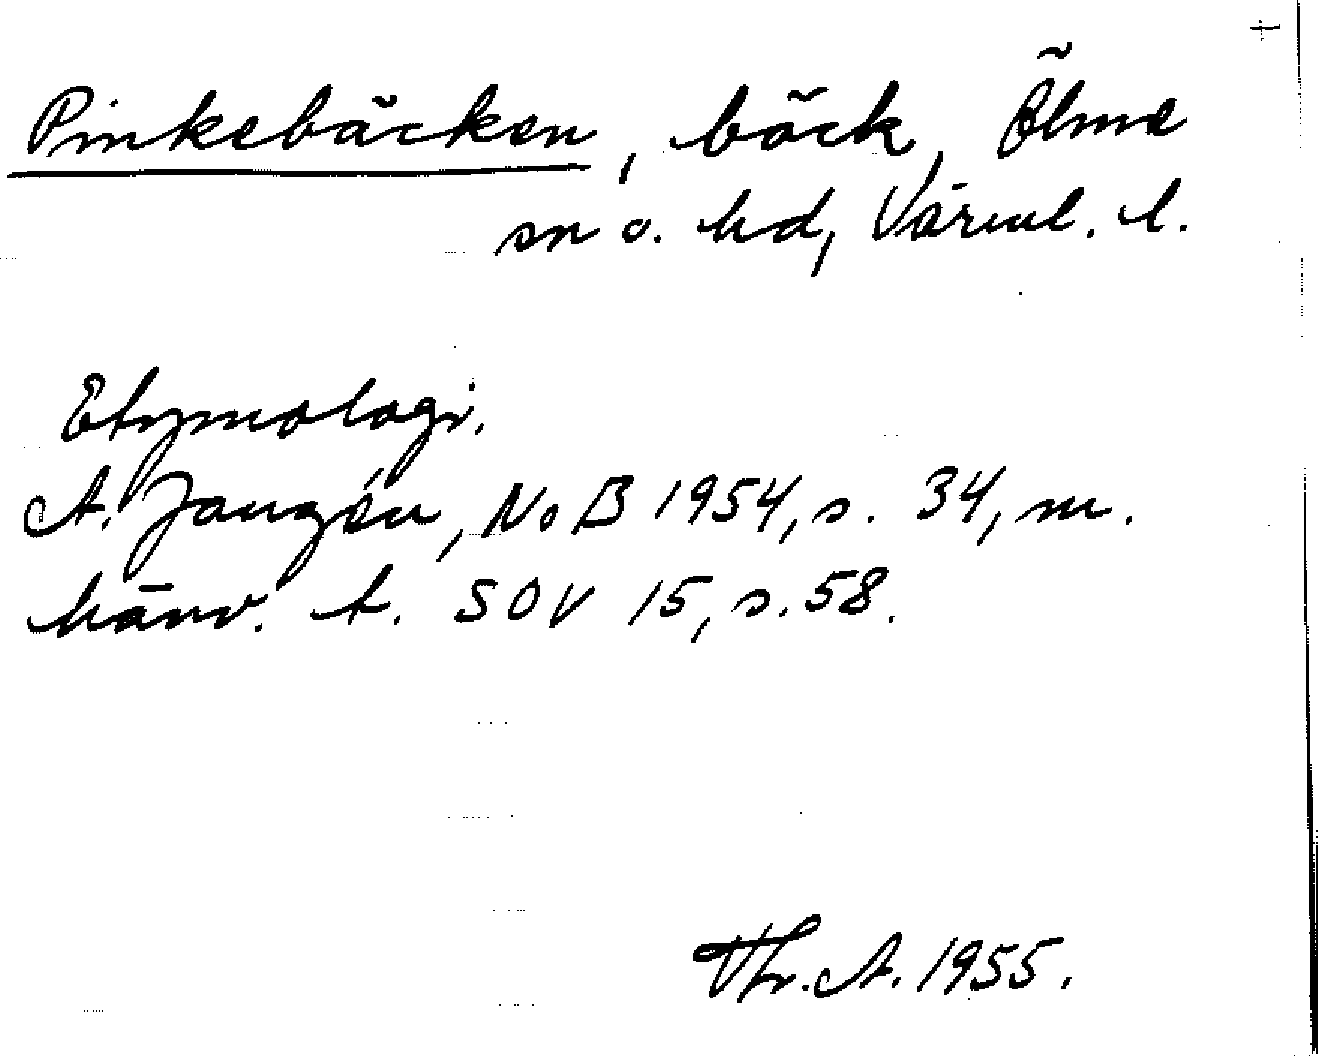 Pinkebäcken, bäck, Ölme
sn o. hd, Värml. l.
Etymologi.
A. Janzén, NoB 1954, s. 34, m.
hänv. t. SOV 15, s. 58.
Thr. A. 1955.